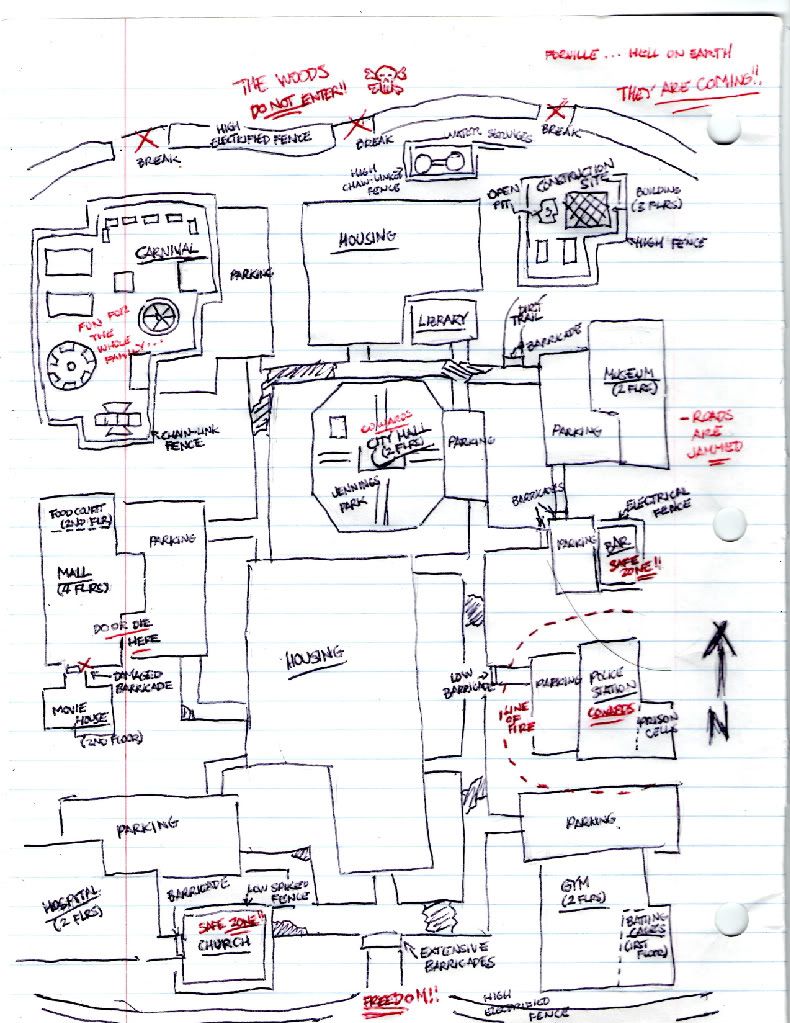 FORVILLE ... HELL ON EARTH
THEY ARE COMING!!
THE WOODS
DO NOT ENTER!!
HIGH
ELECTRIFIED FENCE
BREAK
BREAK
BREAK
WATER SERVICES
HIGH
CHAIN-LINKED
FENCE
OPEN
PIT
CONSTRUCTION
SITE
BUILDING
(3 FLRS)
HIGH FENCE
CARNIVAL
PARKING
HOUSING
LIBRARY
DIRT
TRAIL
BARRICADE
FUN FOR
THE
WHOLE
FAMILY...
CHAIN-LINK
FENCE
MUSEUM
(2 FLRS)
PARKING
- ROADS
ARE
JAMMED
COWARDS
CITY HALL
(2 FLRS)
PARKING
JENNINGS
PARK
FOOD COURT
(2ND FLR)
PARKING
MALL
(4 FLRS)
DO OR DIE
HERE
DAMAGED
BARRICADE
MOVIE
HOUSE
(2ND FLOOR)
BARRICADES
ELECTRICAL
FENCE
PARKING
BAR
SAFE
ZONE!!
HOUSING
LOW
BARRICADE
LINE
OF
FIRE
PARKING
POLICE
STATION
COWARDS
PRISON
CELLS
N
PARKING
PARKING
HOSPITAL
(2 FLRS)
BARRICADE
LOW SPIKED
FENCE
SAFE ZONE!!
CHURCH
EXTENSIVE
BARRICADES
FREEDOM!!
GYM
(2 FLRS)
BATTING
CAGES
(FIRST
FLOOR)
HIGH
ELECTRIFIED
FENCE